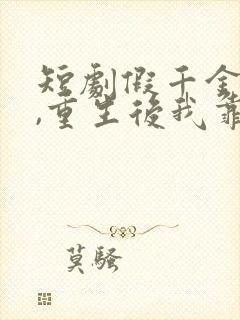 短劇假千金
,重生後我靠
莫騷